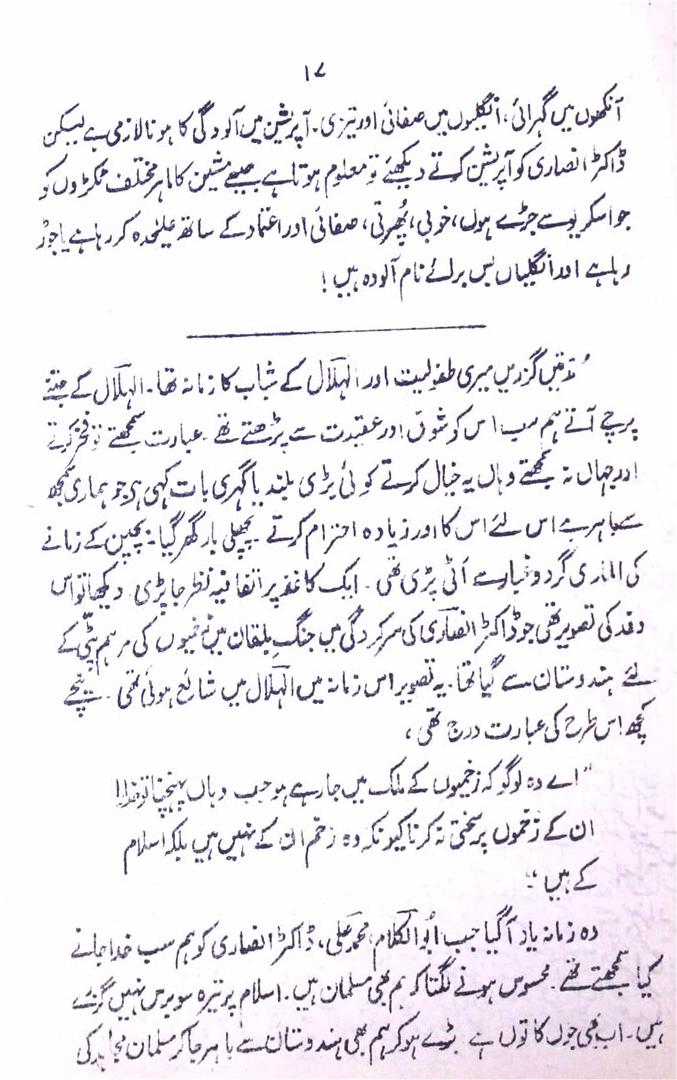 ۱۷
آنکھوں میں گہرائی، انگلیوں میں صفائی اور تیزی۔ آپریشن میں آلودگی کا ہونا لازمی ہے لیکن
ڈاکٹر انصاری کو آپریشن کرتے دیکھئے تو معلوم ہوتا ہے جیسے مشین کا ماہر مختلف ٹکڑوں کو
جو اسکریو سے جڑے ہوں، خوبی، پھرتی، صفائی اور اعتماد کے ساتھ علیحدہ کر رہا ہے یا جوڑ
رہا ہے اور انگلیاں بس برائے نام آلودہ ہیں!
مُدّتیں گزریں میری طفولیت اور الہلال کے شباب کا زمانہ تھا۔ الہلال کے جتنے
پرچے آتے ہم سب اس کو شوق اور عقیدت سے پڑھتے تھے۔ عبارت سمجھتے تو فخر کرتے
اور جہاں نہ سمجھتے وہاں یہ خیال کرتے کوئی بڑی بلند یا گہری بات کہی ہو جو ہماری سمجھ
سے باہر ہے اس لئے اس کا اور زیادہ احترام کرتے۔ پچھلی بار گھر گیا۔ بچپن کے زمانے
کی الماری گرد و غبار سے اَٹی پڑی تھی۔ ایک کاغذ پر اتفاقیہ نظر جا پڑی۔ دیکھا تو اس
وفد کی تصویر تھی جو ڈاکٹر انصاری کی سرکردگی میں جنگِ بلقان میں زخمیوں کی مرہم پٹی کے
لئے ہندوستان سے گیا تھا۔ یہ تصویر اس زمانہ میں الہلال میں شائع ہوئی تھی۔ نیچے
کچھ اس طرح کی عبارت درج تھی،
"اے وہ لوگو کہ زخمیوں کے ملک میں جا رہے ہو جب وہاں پہنچنا تو خدارا
ان کے زخموں پر سختی نہ کرنا کیونکہ وہ زخم ان کے نہیں ہیں بلکہ اسلام
کے ہیں"۔
وہ زمانہ یاد آ گیا جب ابوالکلام، محمد علی، ڈاکٹر انصاری کو ہم سب خدا جانے
کیا سمجھتے تھے۔ محسوس ہونے لگتا کہ ہم بھی مسلمان ہیں۔ اسلام پر تیرہ سو برس نہیں گزرے
ہیں۔ اب بھی جوں کا توں ہے۔ بڑے ہو کر ہم بھی ہندوستان سے باہر جا کر مسلمان مجاہد کی